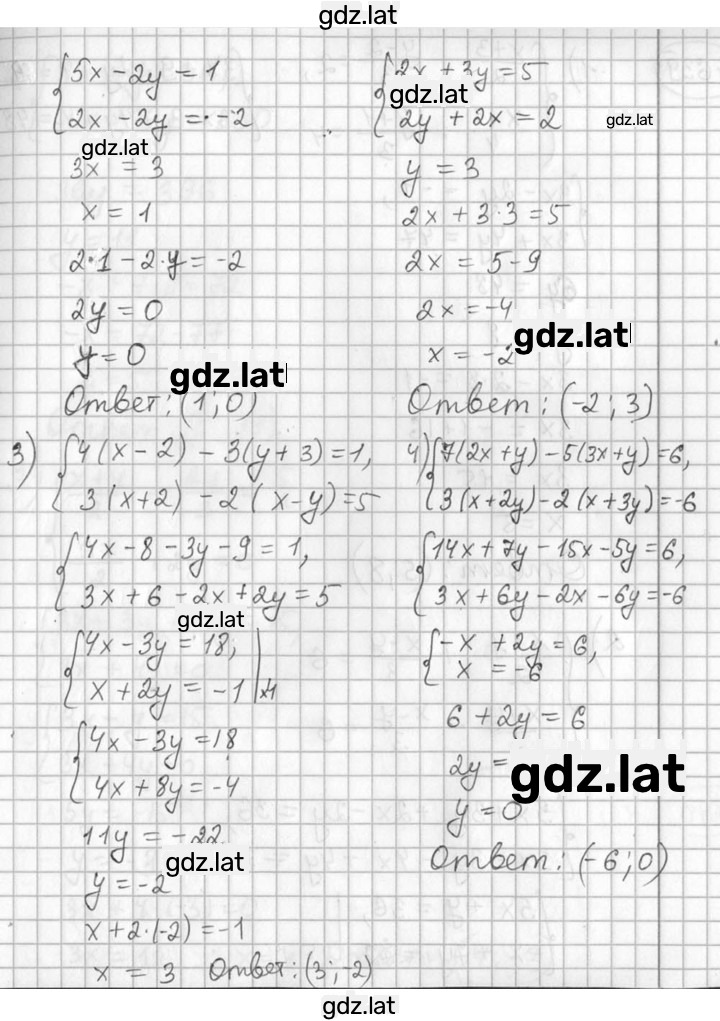 gdz.lat
5x - 2y = 1
2x - 2y = -2
gdz.lat
3x = 3
x = 1
2·1 - 2·y = -2
2y = 0
y = 0
gdz.lat
Ответ: (1; 0)
2x + 3y = 5
gdz.lat
2y + 2x = 2
gdz.lat
y = 3
2x + 3·3 = 5
2x = 5-9
2x = -4
gdz.lat
x = -2
Ответ: (-2; 3)
3) 4(x - 2) - 3(y + 3) = 1,
3(x+2) - 2(x-y) = 5
4x - 8 - 3y - 9 = 1,
3x + 6 - 2x + 2y = 5
gdz.lat
4x - 3y = 18,
x + 2y = -1 |x4
4x - 3y = 18
4x + 8y = -4
11y = -22
gdz.lat
y = -2
x + 2·(-2) = -1
x = 3 Ответ: (3; -2)
4) 7(2x + y) - 5(3x + y) = 6,
3(x+2y) - 2(x+3y) = -6
14x + 7y - 15x - 5y = 6,
3x + 6y - 2x - 6y = -6
-x + 2y = 6,
x = -6
6 + 2y = 6
2y =
gdz.lat
y = 0
Ответ: (-6; 0)
gdz.lat